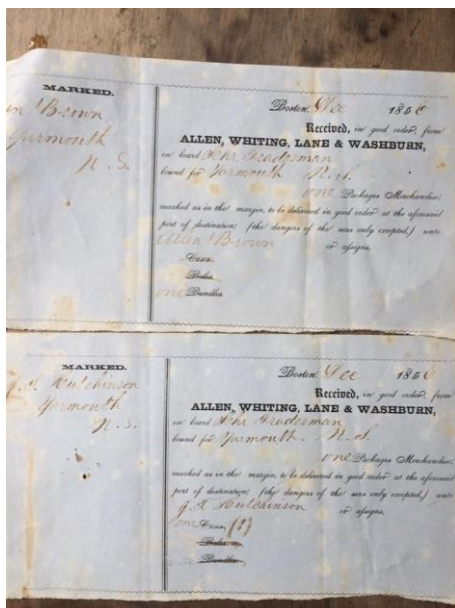 MARKED.
n Brown
Yarmouth
N. S.
Boston, Dec 1856
Received, in good order, from
ALLEN, WHITING, LANE & WASHBURN,
on board Schr Tradesman
bound for Yarmouth N. S.
one Packages Merchandise,
marked as in the margin, to be delivered in good order at the aforesaid
port of destination; (the dangers of the seas only excepted,) unto
Allen Brown or assigns.
Cases
Bales.
one Bundles.
MARKED.
J. A. Hutchinson
Yarmouth
N. S.
Boston, Dec 1856
Received, in good order, from
ALLEN, WHITING, LANE & WASHBURN,
on board Schr Tradesman
bound for Yarmouth. N. S.
one Packages Merchandise,
marked as in the margin, to be delivered in good order at the aforesaid
port of destination; (the dangers of the seas only excepted,) unto
J. A Hutchinson or assigns.
one Cases (1)
Bales
Bundles